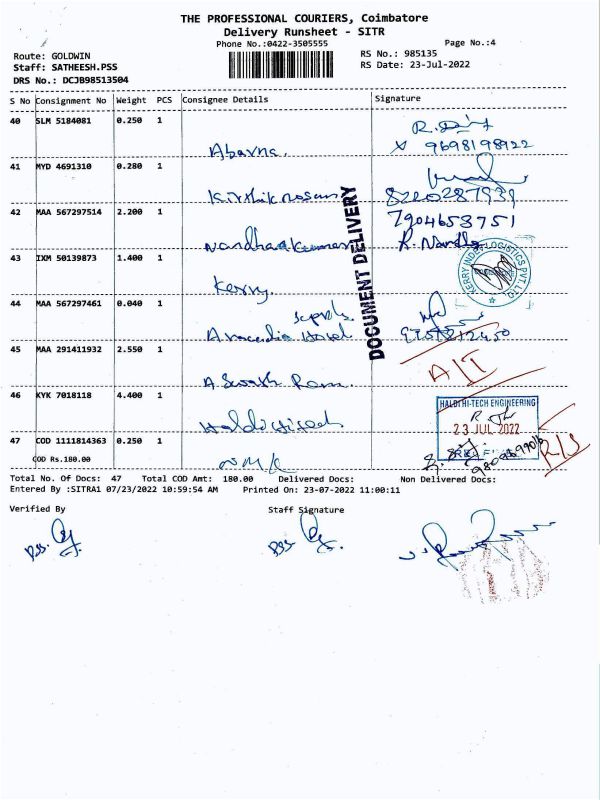 THE PROFESSIONAL COURIERS, Coimbatore
Delivery Runsheet - SITR
Phone No.:0422-3505555
Page No.:4
Route: GOLDWIN
RS No.: 985135
Staff: SATHEESH.PSS
RS Date: 23-Jul-2022
DRS No.: DCJB98513504
S No Consignment No Weight PCS Consignee Details Signature
40 SLM 5184081 0.250 1
Abarna. 9698198922
41 MYD 4691310 0.280 1
8220287939
42 MAA 567297514 2.200 1
7904653751
Nandhakumar R. Nandha
43 IXM 50139873 1.400 1
Kerry
KERRY INDEV LOGISTICS PVT LTD
44 MAA 567297461 0.040 1
DOCUMENT DELIVERY
45 MAA 291411932 2.550 1
Aswath Ram.
46 KYK 7018118 4.400 1
HALDI HI-TECH ENGINEERING
23 JUL 2022
47 COD 1111814363 0.250 1
COD Rs.180.00
Total No. Of Docs: 47 Total COD Amt: 180.00 Delivered Docs: Non Delivered Docs:
Entered By :SITRA1 07/23/2022 10:59:54 AM Printed On: 23-07-2022 11:00:11
Verified By Staff Signature